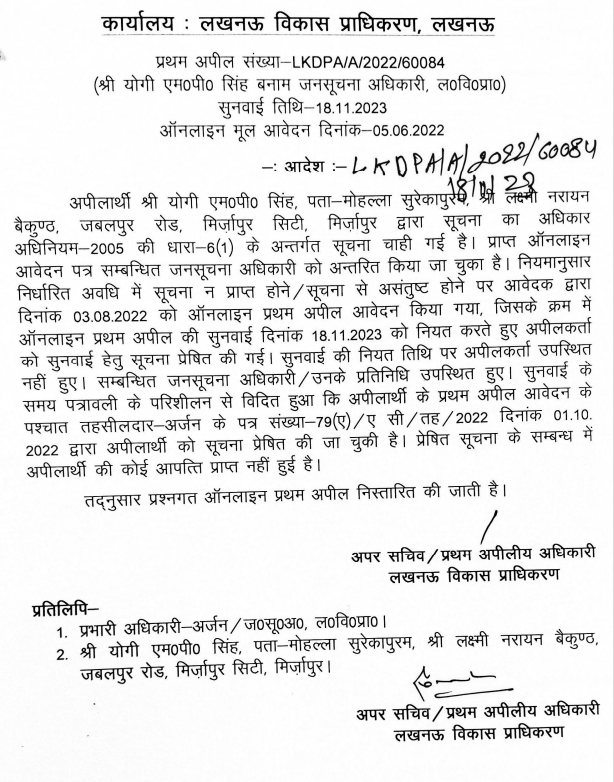 कार्यालय : लखनऊ विकास प्राधिकरण, लखनऊ
प्रथम अपील संख्या–LKDPA/A/2022/60084
(श्री योगी एम0पी0 सिंह बनाम जनसूचना अधिकारी, ल0वि0प्रा0)
सुनवाई तिथि–18.11.2023
ऑनलाइन मूल आवेदन दिनांक–05.06.2022
–: आदेश :– LKDPA/A/2022/60084
अपीलार्थी श्री योगी एम0पी0 सिंह, पता–मोहल्ला सुरेकापुरम, श्री लक्ष्मी नरायन
बैकुण्ठ, जबलपुर रोड, मिर्ज़ापुर सिटी, मिर्ज़ापुर द्वारा सूचना का अधिकार
अधिनियम–2005 की धारा–6(1) के अन्तर्गत सूचना चाही गई है। प्राप्त ऑनलाइन
आवेदन पत्र सम्बन्धित जनसूचना अधिकारी को अन्तरित किया जा चुका है। नियमानुसार
निर्धारित अवधि में सूचना न प्राप्त होने/सूचना से असंतुष्ट होने पर आवेदक द्वारा
दिनांक 03.08.2022 को ऑनलाइन प्रथम अपील आवेदन किया गया, जिसके क्रम में
ऑनलाइन प्रथम अपील की सुनवाई दिनांक 18.11.2023 को नियत करते हुए अपीलकर्ता
को सुनवाई हेतु सूचना प्रेषित की गई। सुनवाई की नियत तिथि पर अपीलकर्ता उपस्थित
नहीं हुए। सम्बन्धित जनसूचना अधिकारी/उनके प्रतिनिधि उपस्थित हुए। सुनवाई के
समय पत्रावली के परिशीलन से विदित हुआ कि अपीलार्थी के प्रथम अपील आवेदन के
पश्चात तहसीलदार–अर्जन के पत्र संख्या–79(ए)/ए सी/तह/2022 दिनांक 01.10.
2022 द्वारा अपीलार्थी को सूचना प्रेषित की जा चुकी है। प्रेषित सूचना के सम्बन्ध में
अपीलार्थी की कोई आपत्ति प्राप्त नहीं हुई है।
तद्नुसार प्रश्नगत ऑनलाइन प्रथम अपील निस्तारित की जाती है।
अपर सचिव/प्रथम अपीलीय अधिकारी
लखनऊ विकास प्राधिकरण
प्रतिलिपि–
1. प्रभारी अधिकारी–अर्जन/ज0सू0अ0, ल0वि0प्रा0।
2. श्री योगी एम0पी0 सिंह, पता–मोहल्ला सुरेकापुरम, श्री लक्ष्मी नरायन बैकुण्ठ,
जबलपुर रोड, मिर्ज़ापुर सिटी, मिर्ज़ापुर।
अपर सचिव/प्रथम अपीलीय अधिकारी
लखनऊ विकास प्राधिकरण